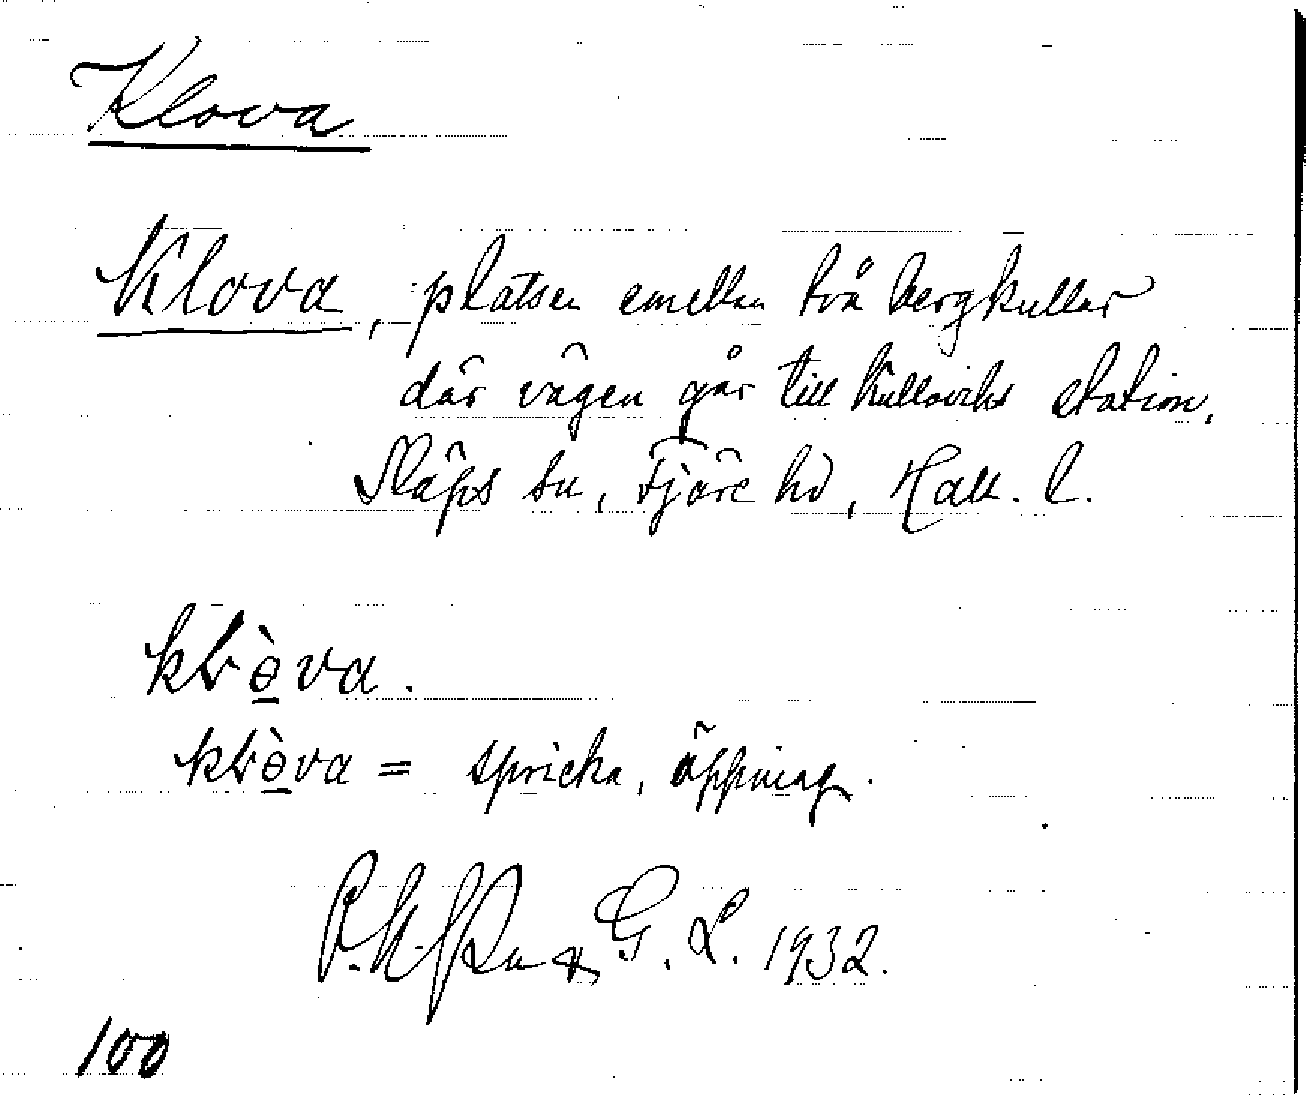 Klova
Klova, platsen emellan två bergkullar
där vägen går till Kullaviks station.
Släps sn, Fjäre hd, Hall. l.
kɫɵ̀va.
kɫɵ̀va = spricka, öppning.
G. L. 1932.
100